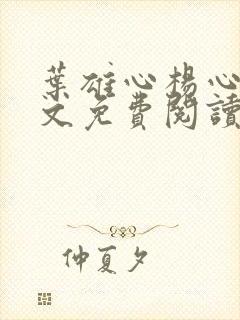 葉雄心楊心
文免費閱讀
仲夏夕